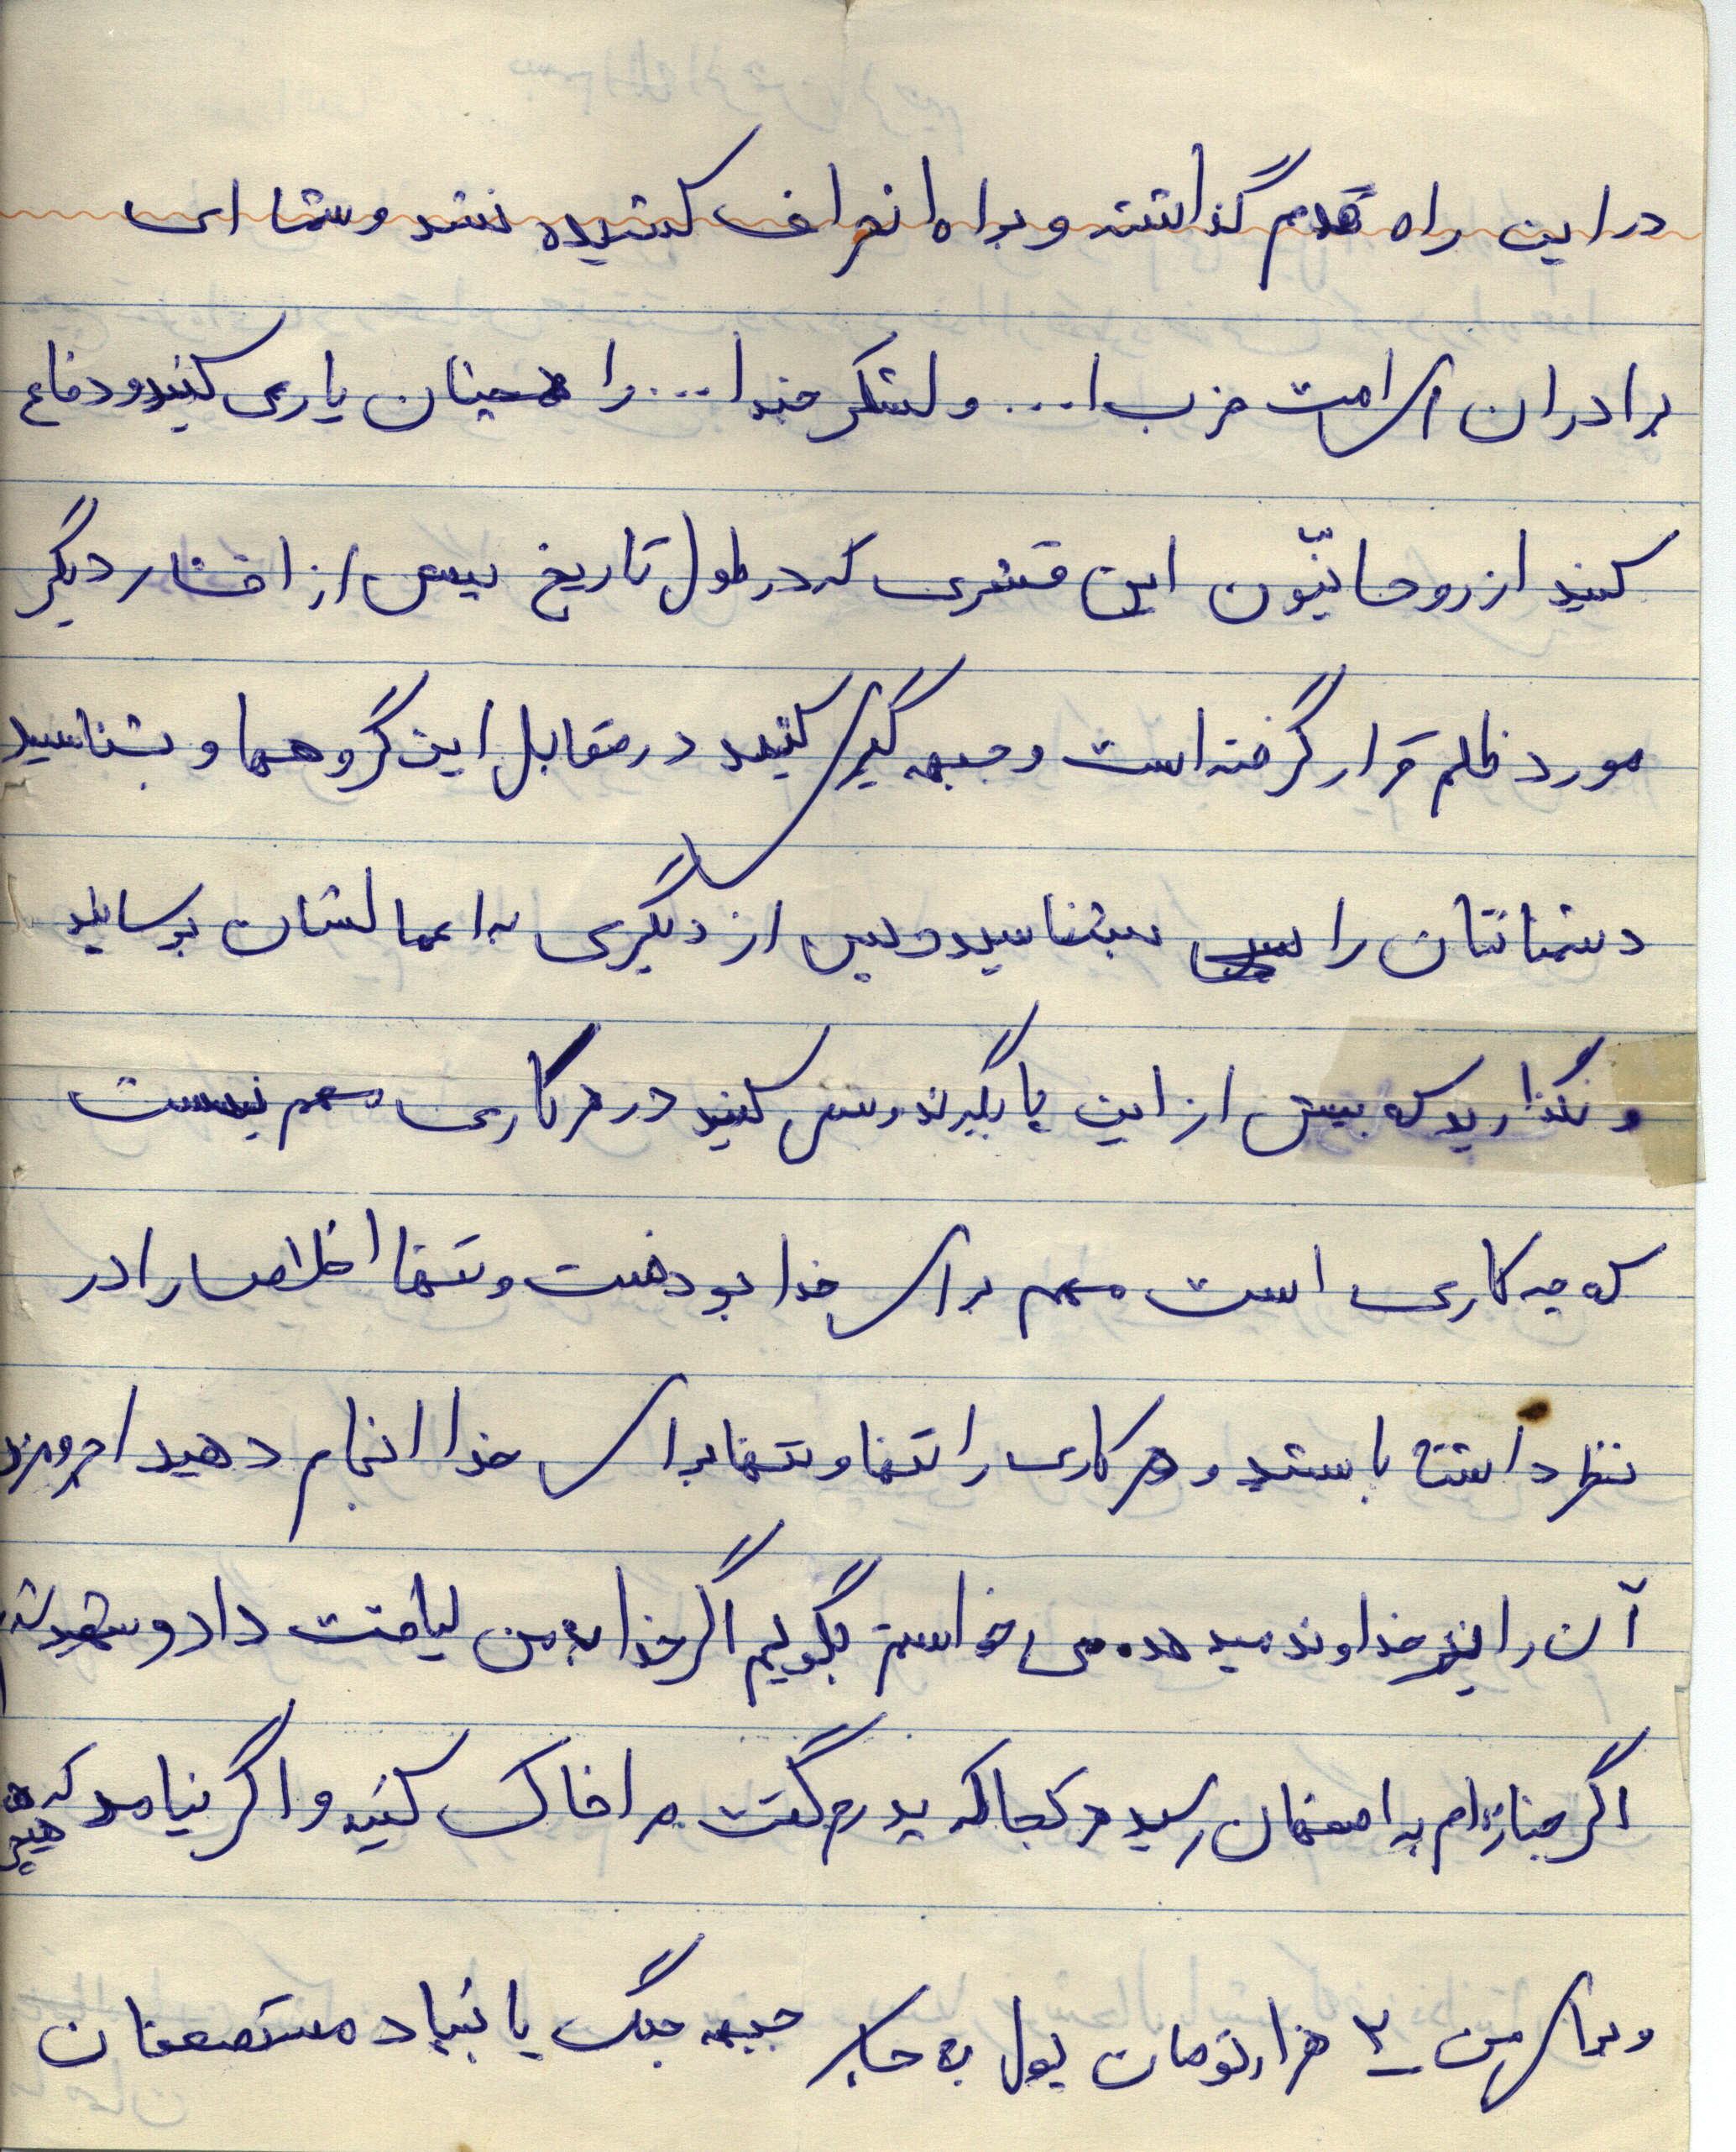 در این راه قدم گذاشته و براه انحراف کشیده نشد و شما ای
برادران ای امت حزب ا... و لشکر خدا ... را همچنان یاری کنید و دفاع
کنید از روحانیّون این قشری که در طول تاریخ بیش از اقشار دیگر
مورد ظلم قرار گرفته است و جبهه گیری کنید در مقابل این گروهها و بشناسید
دشمنانتان را بشناسید و پس از دیگری به اعمالشان برسانید
و نگذارید که بیش از این پا بگیرند و سعی کنید در هر کاری مهم نیست
که چه کاری است مهم برای خدا بودنست و تنها اخلاص را در
نظر داشته باشید و هر کاری را تنها و تنها برای خدا انجام دهید اجر و مزد
آن را نیز خداوند میدهد. می خواستم بگویم اگر خدا به من لیاقت داد و شهید شدم
اگر جنازه‌ام به اصفهان رسید هر کجا که پدرم گفت مرا خاک کنید و اگر نیامد که هیچ
و برای من ۳ هزار تومان پول به جای جبهه جنگ یا بنیاد مستضعفان